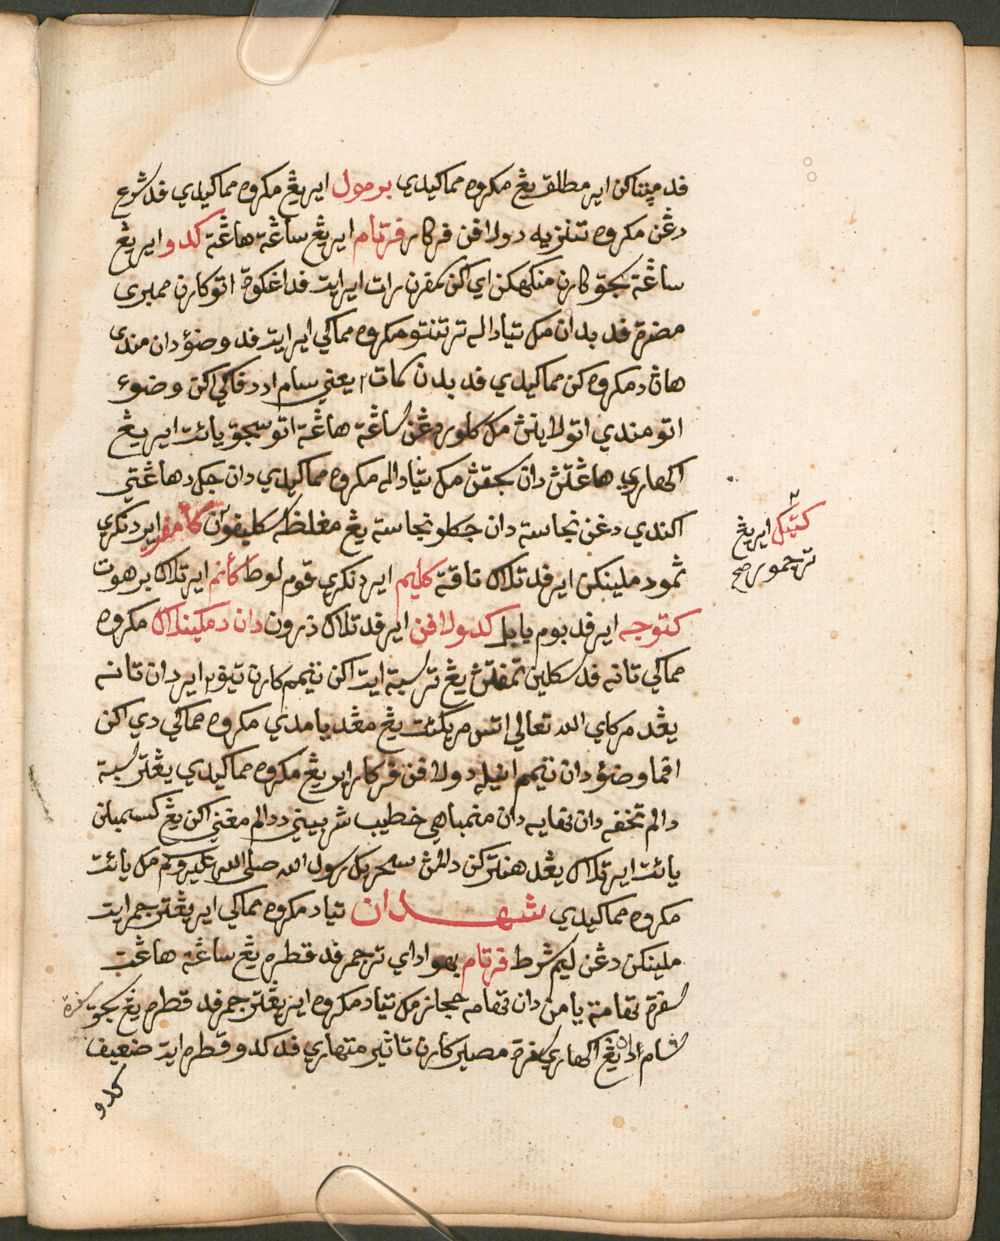 فد مپتاكن اير مطلق يڠ مكروه مماكيدي برمول ايريڠ مكروه مماكيدي فد شرع
دڠن مكروه تنزيه دولافن فركار فرتام ايريڠ ساڠة هاڠة كدو ايريڠ
ساڠة سجق كارن منكهكن اي اكن سمفرن رات اير ايت فد اڠكوة اتو كارن ممبري
مضرة فد بدان مك تيادله ترتنتو مكروه مماكي اير ايت فد وضؤ دان مندي
هاڽ دمكروهكن مماكيدي فد بدن كمات٢ يعني سام اد دفاكي اكن وضوء
اتو مندي اتو لاينڽ مك كلور دڠن ساڠة هاڠة اتو سجق يائت اير يڠ
اكهاري هاڠتڽ دان سجقڽ مك تيادله مكروه مماكيدي دان جك دهاڠتي
اكندي دڠن نجاسة دان جكلو نجاسة يڠ مغلظه سكليفون كامفر اير دنكري
ثمود ملينكن اير فد تلاݢ ناقة كليم اير دنكري قوم لوط كأنم اير تلاݢ برهوت
كتوجه اير فد بوم بابل كدولافن اير فد تلاݢ ذروان دان دمكينلاݢ مكروه
مماكي تانه فد سكلين تمفتڽ يڠ ترسبة ايت اكن تيمم كارن تيڤ٢ اير دان تانه
يڠد مركاي الله تعالى اتس مريكئت يڠ مڠد يامدي مكروه مماكي دي اكن
اقما وضؤ دان تيمم انيله دولافن فركار اير يڠ مكروه مماكيدي يڠترسبة
دالم تحفه دان نهايه دان منمباهي خطيب شربيني ددالم مغني اكن يڠ كسمبيلن
يائت اير تلاݢ يڠد هنتركن دالمڽ سحر بݢ رسول الله صلى الله عليه وسلم مك يائت
مكروه مماكيدي شهدان تياد مكروه مماكي اير يڠترجمر ايت
ملينكن دڠن ليم شرط فرتام بهوا اداي ترجمر فد قطره يڠ ساڠة هاڠة
سفرة تهامة يامن دان تهامه حجاز مك تياد مكروه اير يڠترجمر فد قطره يڠ سجق سفرة
شام اتو يڠ اكهاري سفرة مصير كارن تاثير متهاري فد كدو قطره ايت ضعيف
كدو
كتيݢ اير يڠ
ترجمور صح